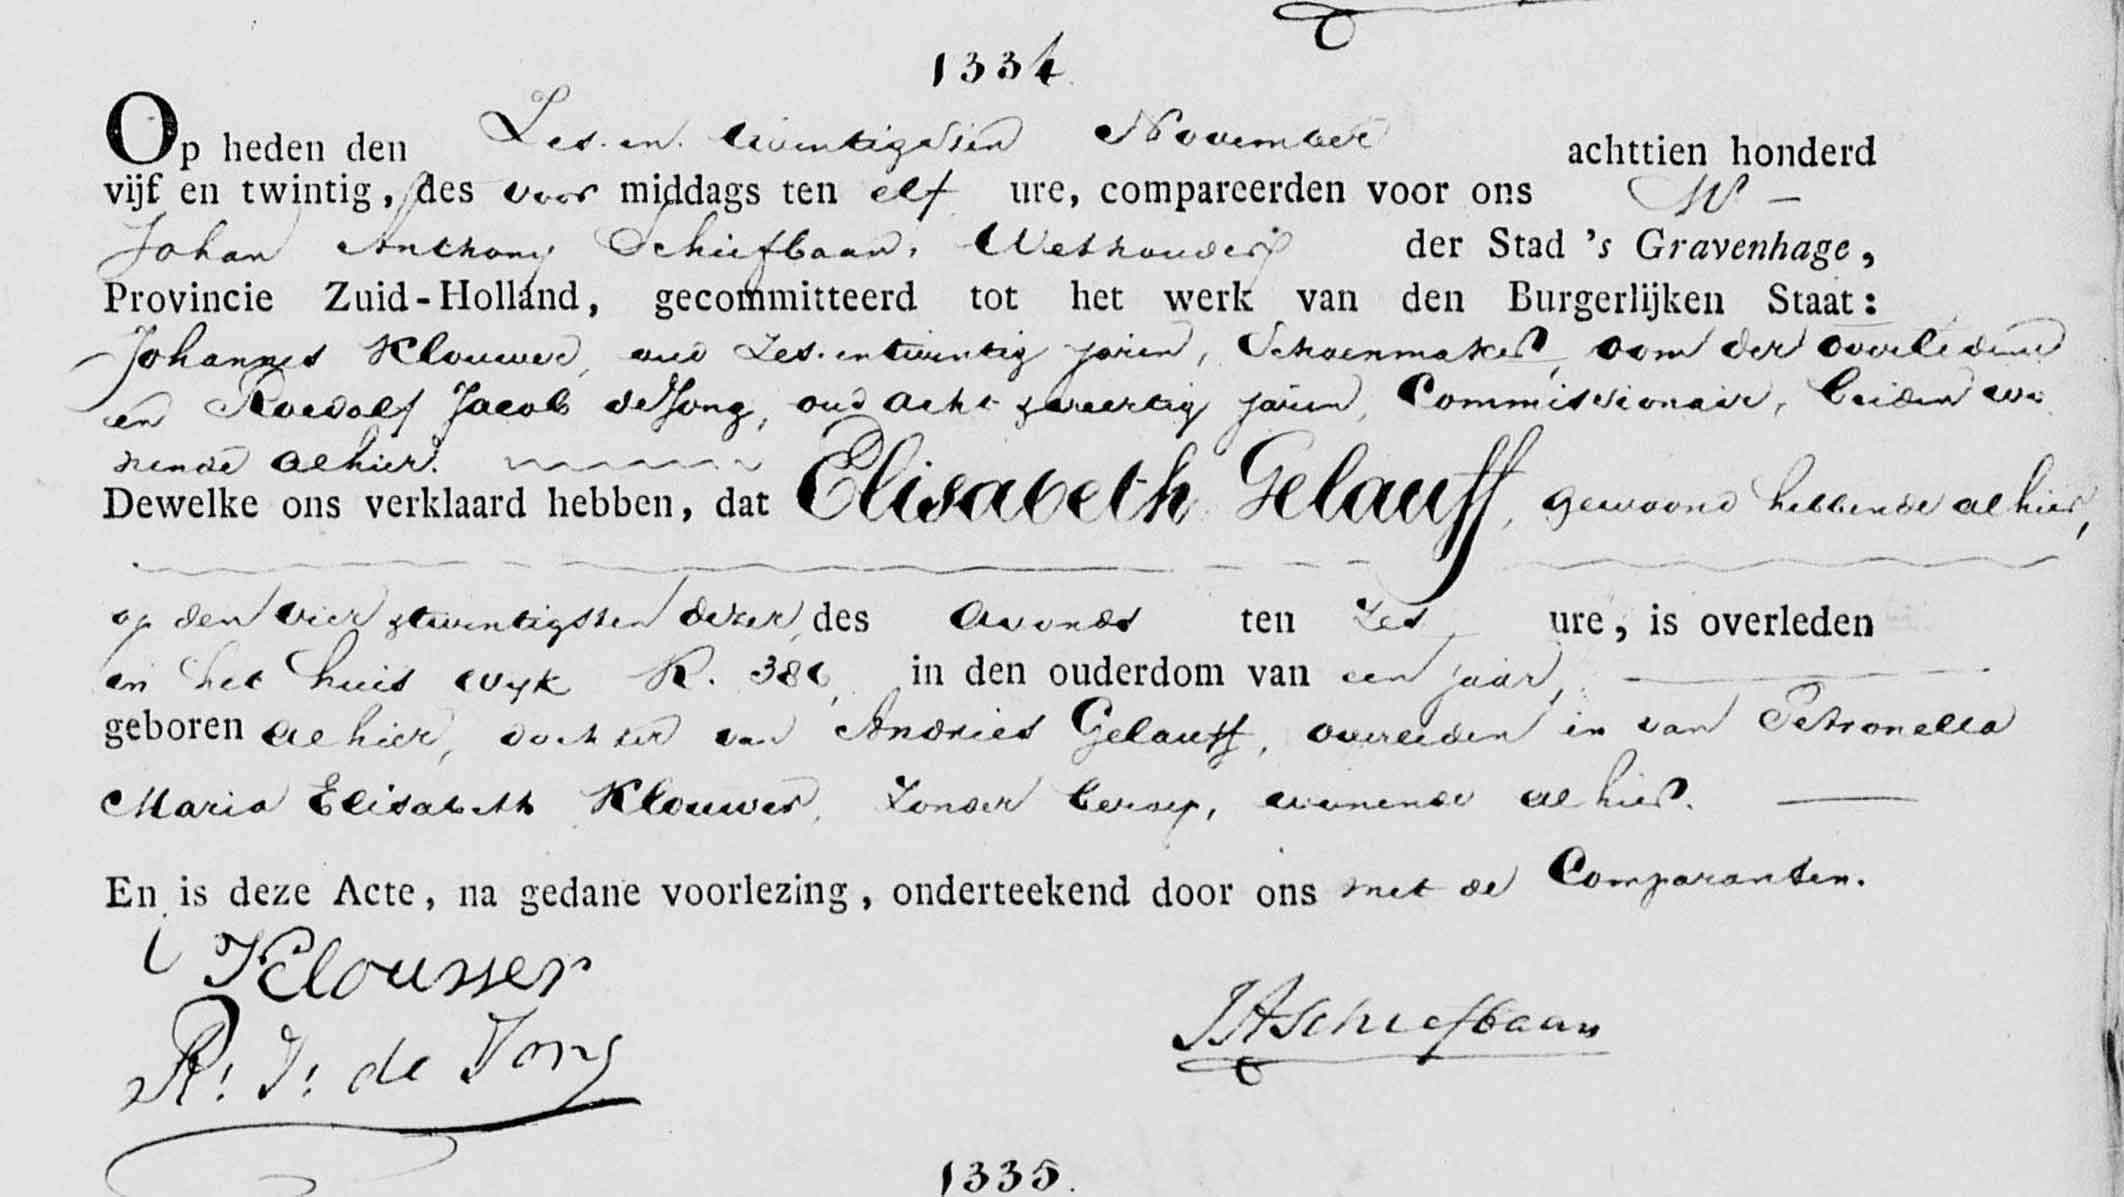 1334.
Op heden den Zes-en-twintigsten November achttien honderd
vijf en twintig, des voor middags ten elf ure, compareerden voor ons
Johan Anthony Schiefbaan, Wethouder der Stad 's Gravenhage,
Provincie Zuid-Holland, gecommitteerd tot het werk van den Burgerlijken Staat:
Johannes Klouwer, oud Zes-entwintig jaren, Schoenmaker, oom der overledene
en Roedolf Jacob de Jong, oud acht jaren, Commissionair, beiden wo
nende alhier.
Dewelke ons verklaard hebben, dat Elisabeth Gelauff, gewoond hebbende alhier,
op den vier & twintigsten dezer, des avonds ten Zes ure, is overleden
in het huis wyk K. in den ouderdom van een jaar,
geboren alhier, dochter van Andries Gelauff, overleden en van Petronella
Maria Elisabeth Klouwer, Zonder beroep, wonende alhier.
En is deze Acte, na gedane voorlezing, onderteekend door ons met de Comparanten.
Klousser
R. J. de Jong
JASchiefbaan
1335.